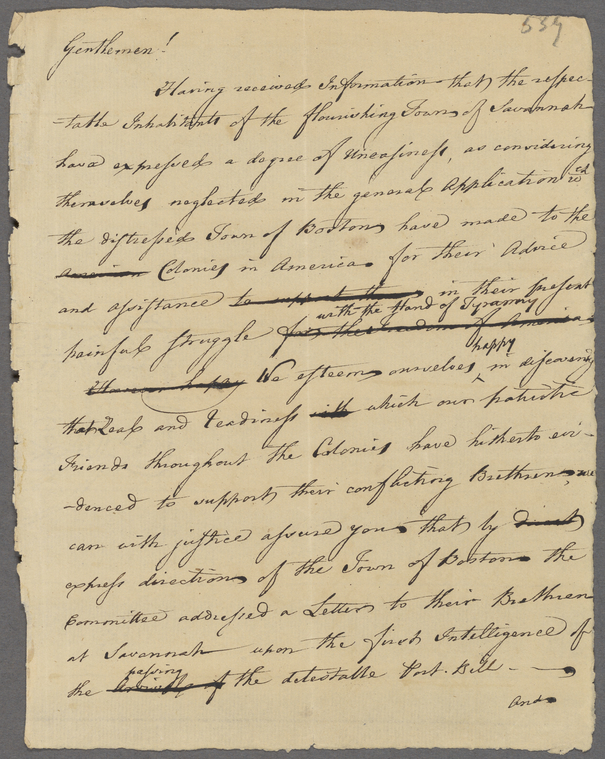 539
Gentlemen!
Having received Information that the respec-
-table Inhabitants of the flourishing Town of Savannah
have expressed a degree of Uneasiness, as considering
themselves neglected in the general Application wch
the distressed Town of Boston have made to the
American Colonies in America for their Advice
and assistance to support them in their present
with the Hand of Tyranny
painful struggle for the freedom of America
happy
We esteem ourselves in discovering
that Zeal and readiness with which our patriotic
Friends throughout the Colonies have hitherto evi-
-denced to support their conflicting Brethren, we
can with justice assure you that by direct
express direction of the Town of Boston the
Committee addressed a Letter to their Brethren
at Savannah upon the first Intelligence of
passing
the of the detestable Port-Bill —
and